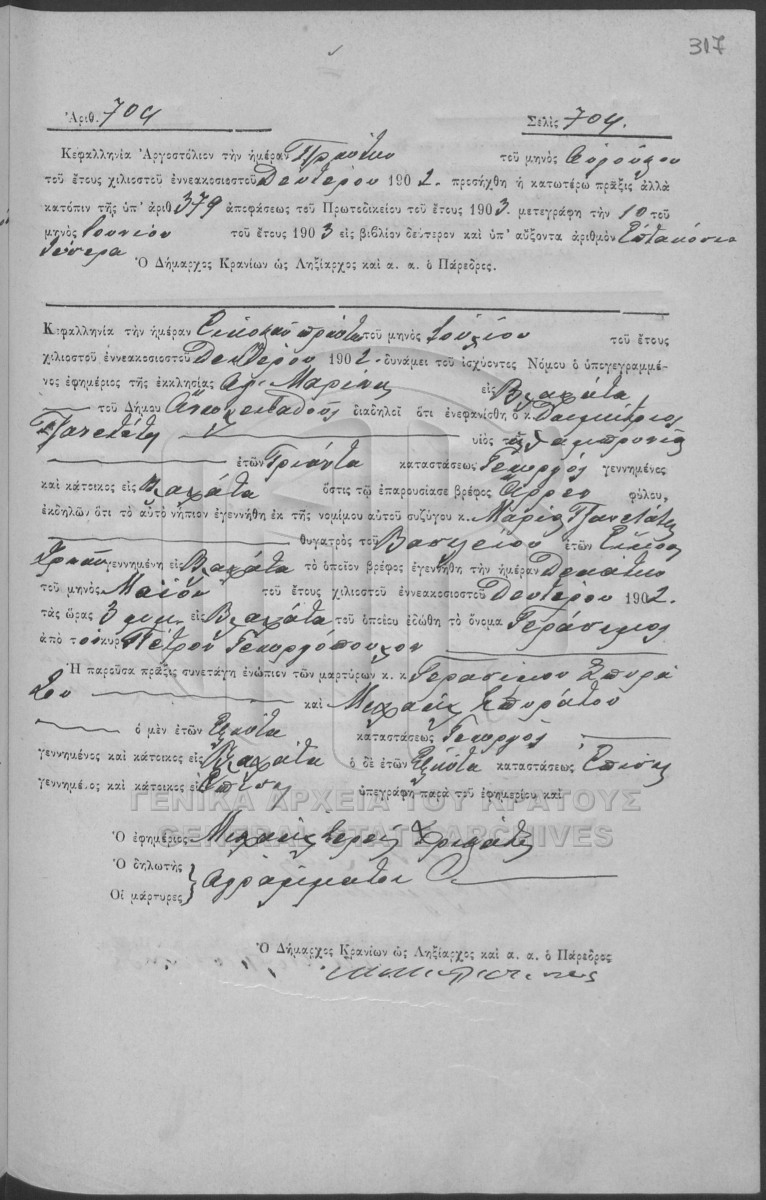 317
Ἀριθ. 704 Σελὶς 704.
Κεφαλληνία Ἀργοστόλιον τὴν ἡμέραν Πρώτην τοῦ μηνὸς
τοῦ ἔτους χιλιοστοῦ ἐννεακοσιοστοῦ Δευτέρου 1902. προσήχθη ἡ κατωτέρω πρᾶξις ἀλλὰ
κατόπιν τῆς ὑπ' ἀριθ. 379 ἀποφάσεως τοῦ Πρωτοδικείου τοῦ ἔτους 1903. μετεγράφη τὴν 10 τοῦ
μηνὸς Ἰουνίου τοῦ ἔτους 1903 εἰς βιβλίον δεύτερον καὶ ὑπ' αὔξοντα ἀριθμὸν Ἑπτακόσια
τέσσερα Ὁ Δήμαρχος Κρανίων ὡς Ληξίαρχος καὶ α. α. ὁ Πάρεδρος.
Κεφαλληνία τὴν ἡμέραν Εἰκοστὴν πρώτην τοῦ μηνὸς Ἰουλίου τοῦ ἔτους
χιλιοστοῦ ἐννεακοσιοστοῦ Δευτέρου 1902. δυνάμει τοῦ ἰσχύοντος Νόμου ὁ ὑπογεγραμμέ-
νος ἐφημέριος τῆς ἐκκλησίας Ἁγ. Μαρίνης εἰς Βλαχάτα
τοῦ Δήμου διαδηλοῖ ὅτι ἐνεφανίσθη ὁ κ. Δημήτριος
Τζανετάτης υἱὸς
ἐτῶν Τριάντα καταστάσεως Γεωργὸς γεννημένος
καὶ κάτοικος εἰς Βλαχάτα ὅστις τῷ ἐπαρουσίασε βρέφος ἄρρεν φύλου,
ἐκδηλῶν ὅτι τὸ αὐτὸ νήπιον ἐγεννήθη ἐκ τῆς νομίμου αὐτοῦ συζύγου κ. Μαρία Τζανετάτη
θυγατρὸς τοῦ Βασιλείου ἐτῶν Εἴκοσι
γεννημένη εἰς Βλαχάτα τὸ ὁποῖον βρέφος ἐγεννήθη τὴν ἡμέραν Δεκάτην
τοῦ μηνὸς Μαΐου τοῦ ἔτους χιλιοστοῦ ἐννεακοσιοστοῦ Δευτέρου 1902.
τὰς ὥρας 3 μ.μ. εἰς Βλαχάτα τοῦ ὁποίου ἐδώθη τὸ ὄνομα Γεράσιμος
ἀπὸ τὸν κυρ Πέτρον Γεωργόπουλον
Ἡ παροῦσα πρᾶξις συνετάγη ἐνώπιον τῶν μαρτύρων κ. κ. Γερασίμου Σπυρά
του καὶ Μιχαὴλ Σπυράτου
ὁ μὲν ἐτῶν Ἑξῆντα καταστάσεως Γεωργὸς
γεννημένος καὶ κάτοικος εἰς Βλαχάτα ὁ δὲ ἐτῶν Ἑξῆντα καταστάσεως Ἐπίσης
γεννημένος καὶ κάτοικος εἰς Ἐπίσης ὑπεγράφη παρὰ τοῦ ἐφημερίου καὶ
ΓΕΝΙΚΑ ΑΡΧΕΙΑ ΤΟΥ ΚΡΑΤΟΥΣ
GENERAL STATE ARCHIVES
Ὁ ἐφημέριος Μιχαὴλ ἱερεὺς
Ὁ δηλωτὴς
Οἱ μάρτυρες } Ἀγράμματοι
Ὁ Δήμαρχος Κρανίων ὡς Ληξίαρχος καὶ α. α. ὁ Πάρεδρος